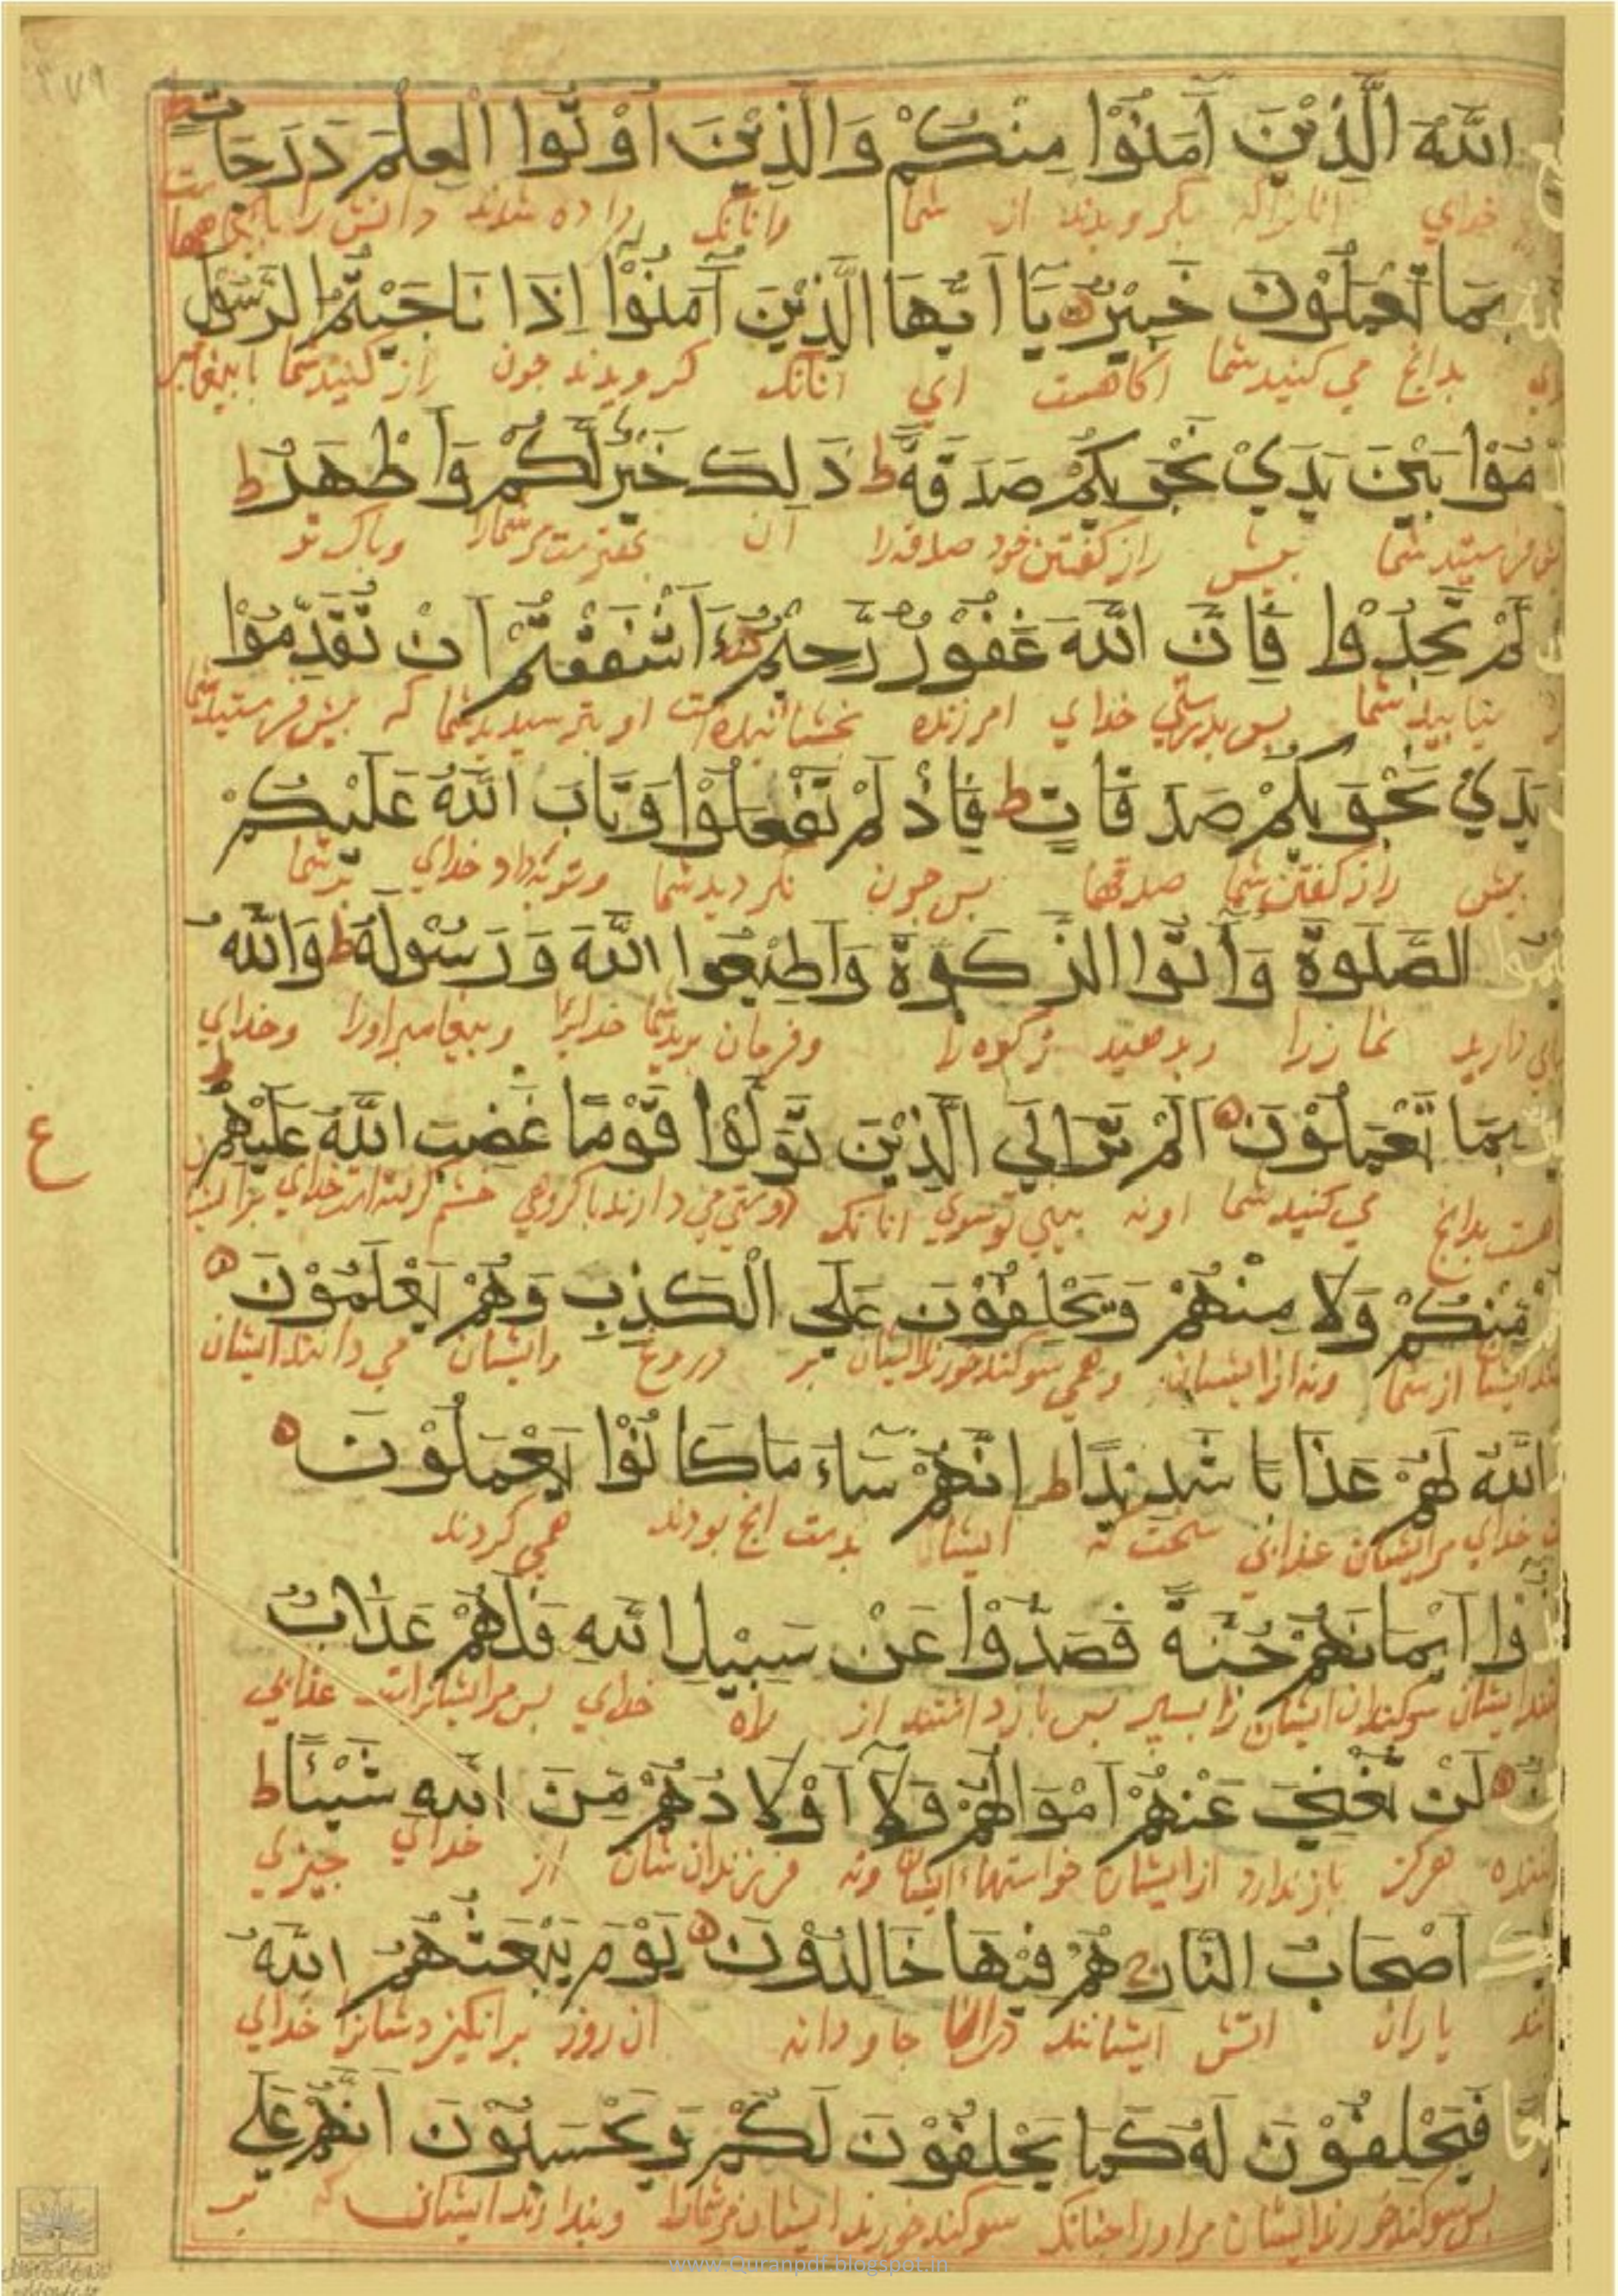 الله الَّذِيْنَ آمَنُوْا مِنْكُمْ وَالَّذِيْنَ اُوْتُوا الْعِلْمَ دَرَجَاتٍ
خداي انانراكه بكرويدند از شما وانانك داده شدند دانش را
بِمَا تَعْمَلُوْنَ خَبِيْرٌ يَا اَيُّهَا الَّذِيْنَ آمَنُوْا اِذَا نَاجَيْتُمُ الرَّسُوْلَ
بدانج مي كنيد شما اكاهست اي انانك كرويدند جون راز كنيد شما
مُوْا بَيْنَ يَدَيْ نَجْوٰيكُمْ صَدَقَةً ط ذَلِكَ خَيْرٌ لَكُمْ وَاَطْهَرُ ط
شما بيش راز كفتن خود صدقه را ان وباكرتر
لَمْ تَجِدُوْا فَاِنَّ اللهَ غَفُوْرٌ رَّحِيْمٌ ءَاَشْفَقْتُمْ اَنْ تُقَدِّمُوْا
نيابيد شما بس بدرستي خداي امرزنده بخشاينده است او بترسيديد شما كه
يَدَيْ نَجْوٰيكُمْ صَدَقَاتٍ ط فَاِذْ لَمْ تَفْعَلُوْا وَتَابَ اللهُ عَلَيْكُمْ
بيش راز كفتن شما صدقها بس جون نكرديد شما وتوبه داد خداي بر شما
الصَّلٰوةَ وَأٰتُوا الزَّكٰوةَ وَاَطِيْعُوا اللهَ وَرَسُوْلَهُ ط وَاللهُ
داريد نماز را وبدهيد زكوه را وفرمان بريد شما خدايرا وبيغامبر اورا وخداي
ط
بِمَا تَعْمَلُوْنَ اَلَمْ تَرَ اِلَي الَّذِيْنَ تَوَلَّوْا قَوْمًا غَضِبَ اللهُ عَلَيْهِمْ
ع
هست بدانج مي كنيد شما اونه بيني تو سوي انانك دوستي مي دارند با كروهي خشم كرفته است خداي
مِنْكُمْ وَلَا مِنْهُمْ وَيَحْلِفُوْنَ عَلَي الْكَذِبِ وَهُمْ يَعْلَمُوْنَ
از شما ونه از ايشان وهمي سوكند خورند ايشان بر دروغ وايشان مي دانند ايشان
اللهُ لَهُمْ عَذَابًا شَدِيْدًا ط اِنَّهُمْ سَاءَ مَا كَانُوْا يَعْمَلُوْنَ
خداي مر ايشان عذابي سخت كه ايشان بدست انج بودند همي كردند
وْا اَيْمَانَهُمْ جُنَّةً فَصَدُّوْا عَنْ سَبِيْلِ اللهِ فَلَهُمْ عَذَابٌ
ايشان سوكندان ايشان را بسپر بس باز داشتند از راه خداي بس مر ايشانراست عذابي
لَنْ تُغْنِيَ عَنْهُمْ اَمْوَالُهُمْ وَلَا اَوْلَادُهُمْ مِنَ اللهِ شَيْئًا ط
هركز باز ندارد از ايشان خواستهاء ايشان ونه فرزندان شان از خداي جيزي
اَصْحَابُ النَّارِ هُمْ فِيْهَا خَالِدُوْنَ يَوْمَ يَبْعَثُهُمُ اللهُ
ياران اتش ايشانند درانجا جاودانه ان روز برانكيزد شانرا خداي
فَيَحْلِفُوْنَ لَهُ كَمَا يَحْلِفُوْنَ لَكُمْ وَيَحْسَبُوْنَ اَنَّهُمْ عَلَي
بس سوكند خورند ايشان مر اورا جنانك سوكند خورند ايشان مر شمارا وبندارند ايشان كه بر
www.Quranpdf.blogspot.in